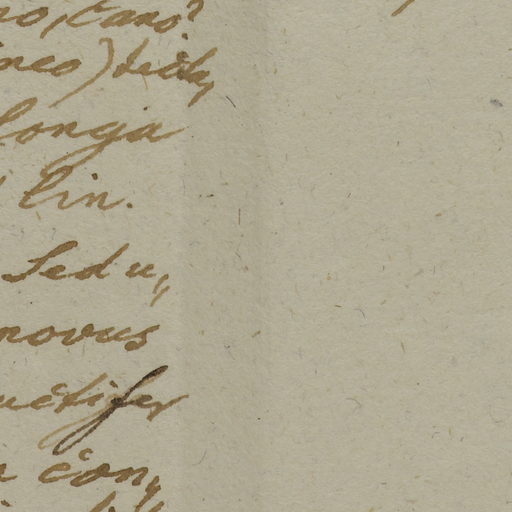 no, cano?
neo) tecta,
longa
lin.
Sed u,,
novus
uctifer
con,,